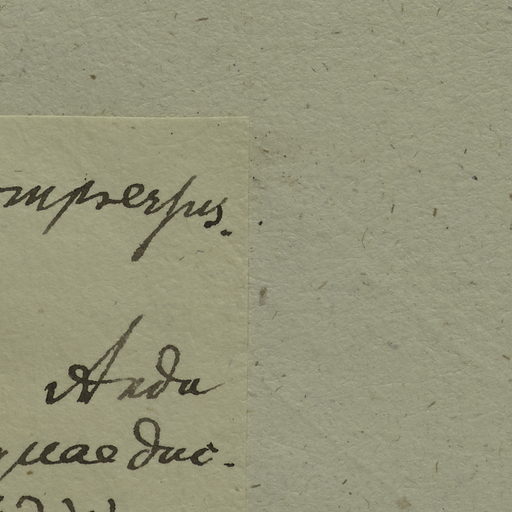 ompressus.
Andu
quae duc.